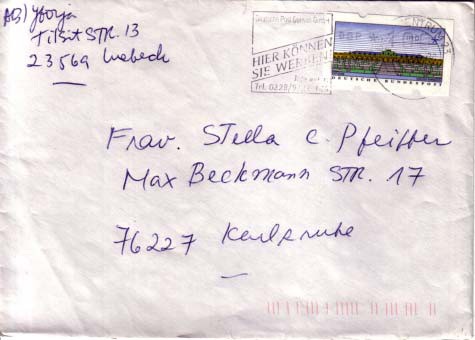 AB) Yborja
Tilsit STR. 13
23569 Luebeck
Deutsche Post
HIER KÖNNEN
SIE WERBEN
Tel. 0228/9
DBP
DEUTSCHE BUNDESPOST
Frau. Stella C. Pfeiffer
Max Beckmann STR. 17
76227 Karlsruhe